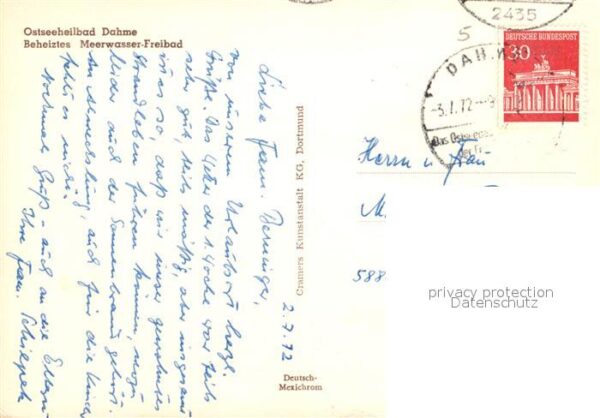 Ostseeheilbad Dahme
Beheiztes Meerwasser-Freibad
2435
5
DEUTSCHE BUNDESPOST
30
DAHME
-3.7.72--9
Das Ostsee
Herrn u. Frau
M.
588
Cramers Kunstanstalt KG, Dortmund
Deutsch-
Mexichrom
2.7.72
Liebe Fam. Berninger,
von unserem Urlaubsort herzl.
Grüße. Das Wetter der 1. Woche war teils
sehr gut, teils mäßig, aber insgesamt
ist es so, daß wir unser gewohntes
Strandleben führen können, wozu
leider auch der Sonnenbrand gehört.
An Abwechslung, auch für die Kinder
fehlt es nicht.
Nochmals Gruß - auch an die Eltern
Ihre Fam.
privacy protection
Datenschutz